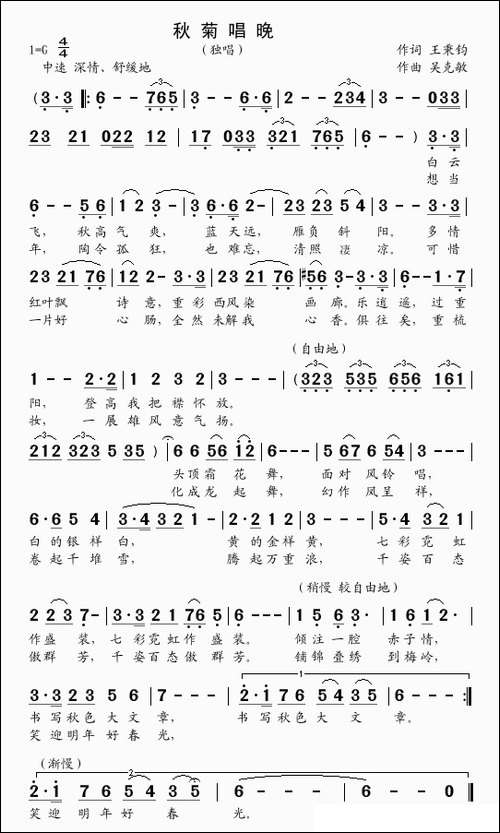 秋菊唱晚
1=G 4/4 （独唱） 作词 王秉钧
中速 深情、舒缓地 作曲 吴克敏
(3·3 ‖: 6 - - 765 | 3 - - 6·6 | 2 - - 234 | 3 - - 033
23 21 022 12 | 17 033 321 765 | 6 - - ) 3·3
白云
想当
6 - - 5 6 | 1 2 3 - | 3 6·6 6 2 - | 23 23 5 4 | 3 - - 3·3
飞， 秋高气爽， 蓝天远， 雁负斜阳。 多情
年， 陶令孤狂， 也难忘， 清照凄凉。 可惜
23 21 76 | 12 2 - 3·3 | 23 21 76 | #56 3 - 3·3 | 6 - - 1·7
红叶飘 诗意，重彩西风染 画廊。乐逍遥，过重
一片好 心肠，全然未解我 心香。俱往矣，重梳
（自由地）
1 - - 2·2 | 1 2 3 2 | 3 - - - | (323 535 656 161
阳， 登高我把襟怀放。
妆， 一展雄风意气扬。
212 323 535 35 ) | 6 6 56 12 | 6 - - - | 5 67 6 54 | 3 - - - |
头顶霜花舞， 面对风铃唱，
化成龙起舞， 幻作凤呈祥，
6·6 5 4 | 3·4 32 1 - | 2·2 1 2 | 3 - - - | 5·4 32 1
白的银样白， 黄的金样黄， 七彩霓虹
卷起千堆雪， 腾起万重浪， 千姿百态
（稍慢 较自由地）
2 2 3 7 - | 3·3 21 76 5 | 6 - - - | 1 5 6 3· | 1 6 1 2·
作盛装，七彩霓虹作盛装。 倾注一腔 赤子情，
傲群芳，千姿百态傲群芳。 铺锦叠绣 到梅岭，
3·3 2 3 5 6 | 7 - - - | 2·1 7 6 5 4 3 5 | 6 - - - :‖
书写秋色大文章， 书写秋色大文章。
笑迎明年好春光，
（渐慢）
2·1 7 6 5 4 3 5 | 6 - - - | 6 - - - | 6
笑迎明年好春光。